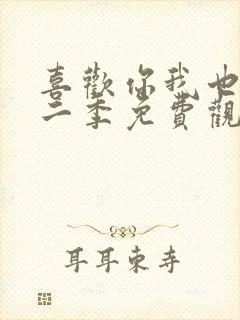 喜歡你我也
二季免費觀
耳耳東寺